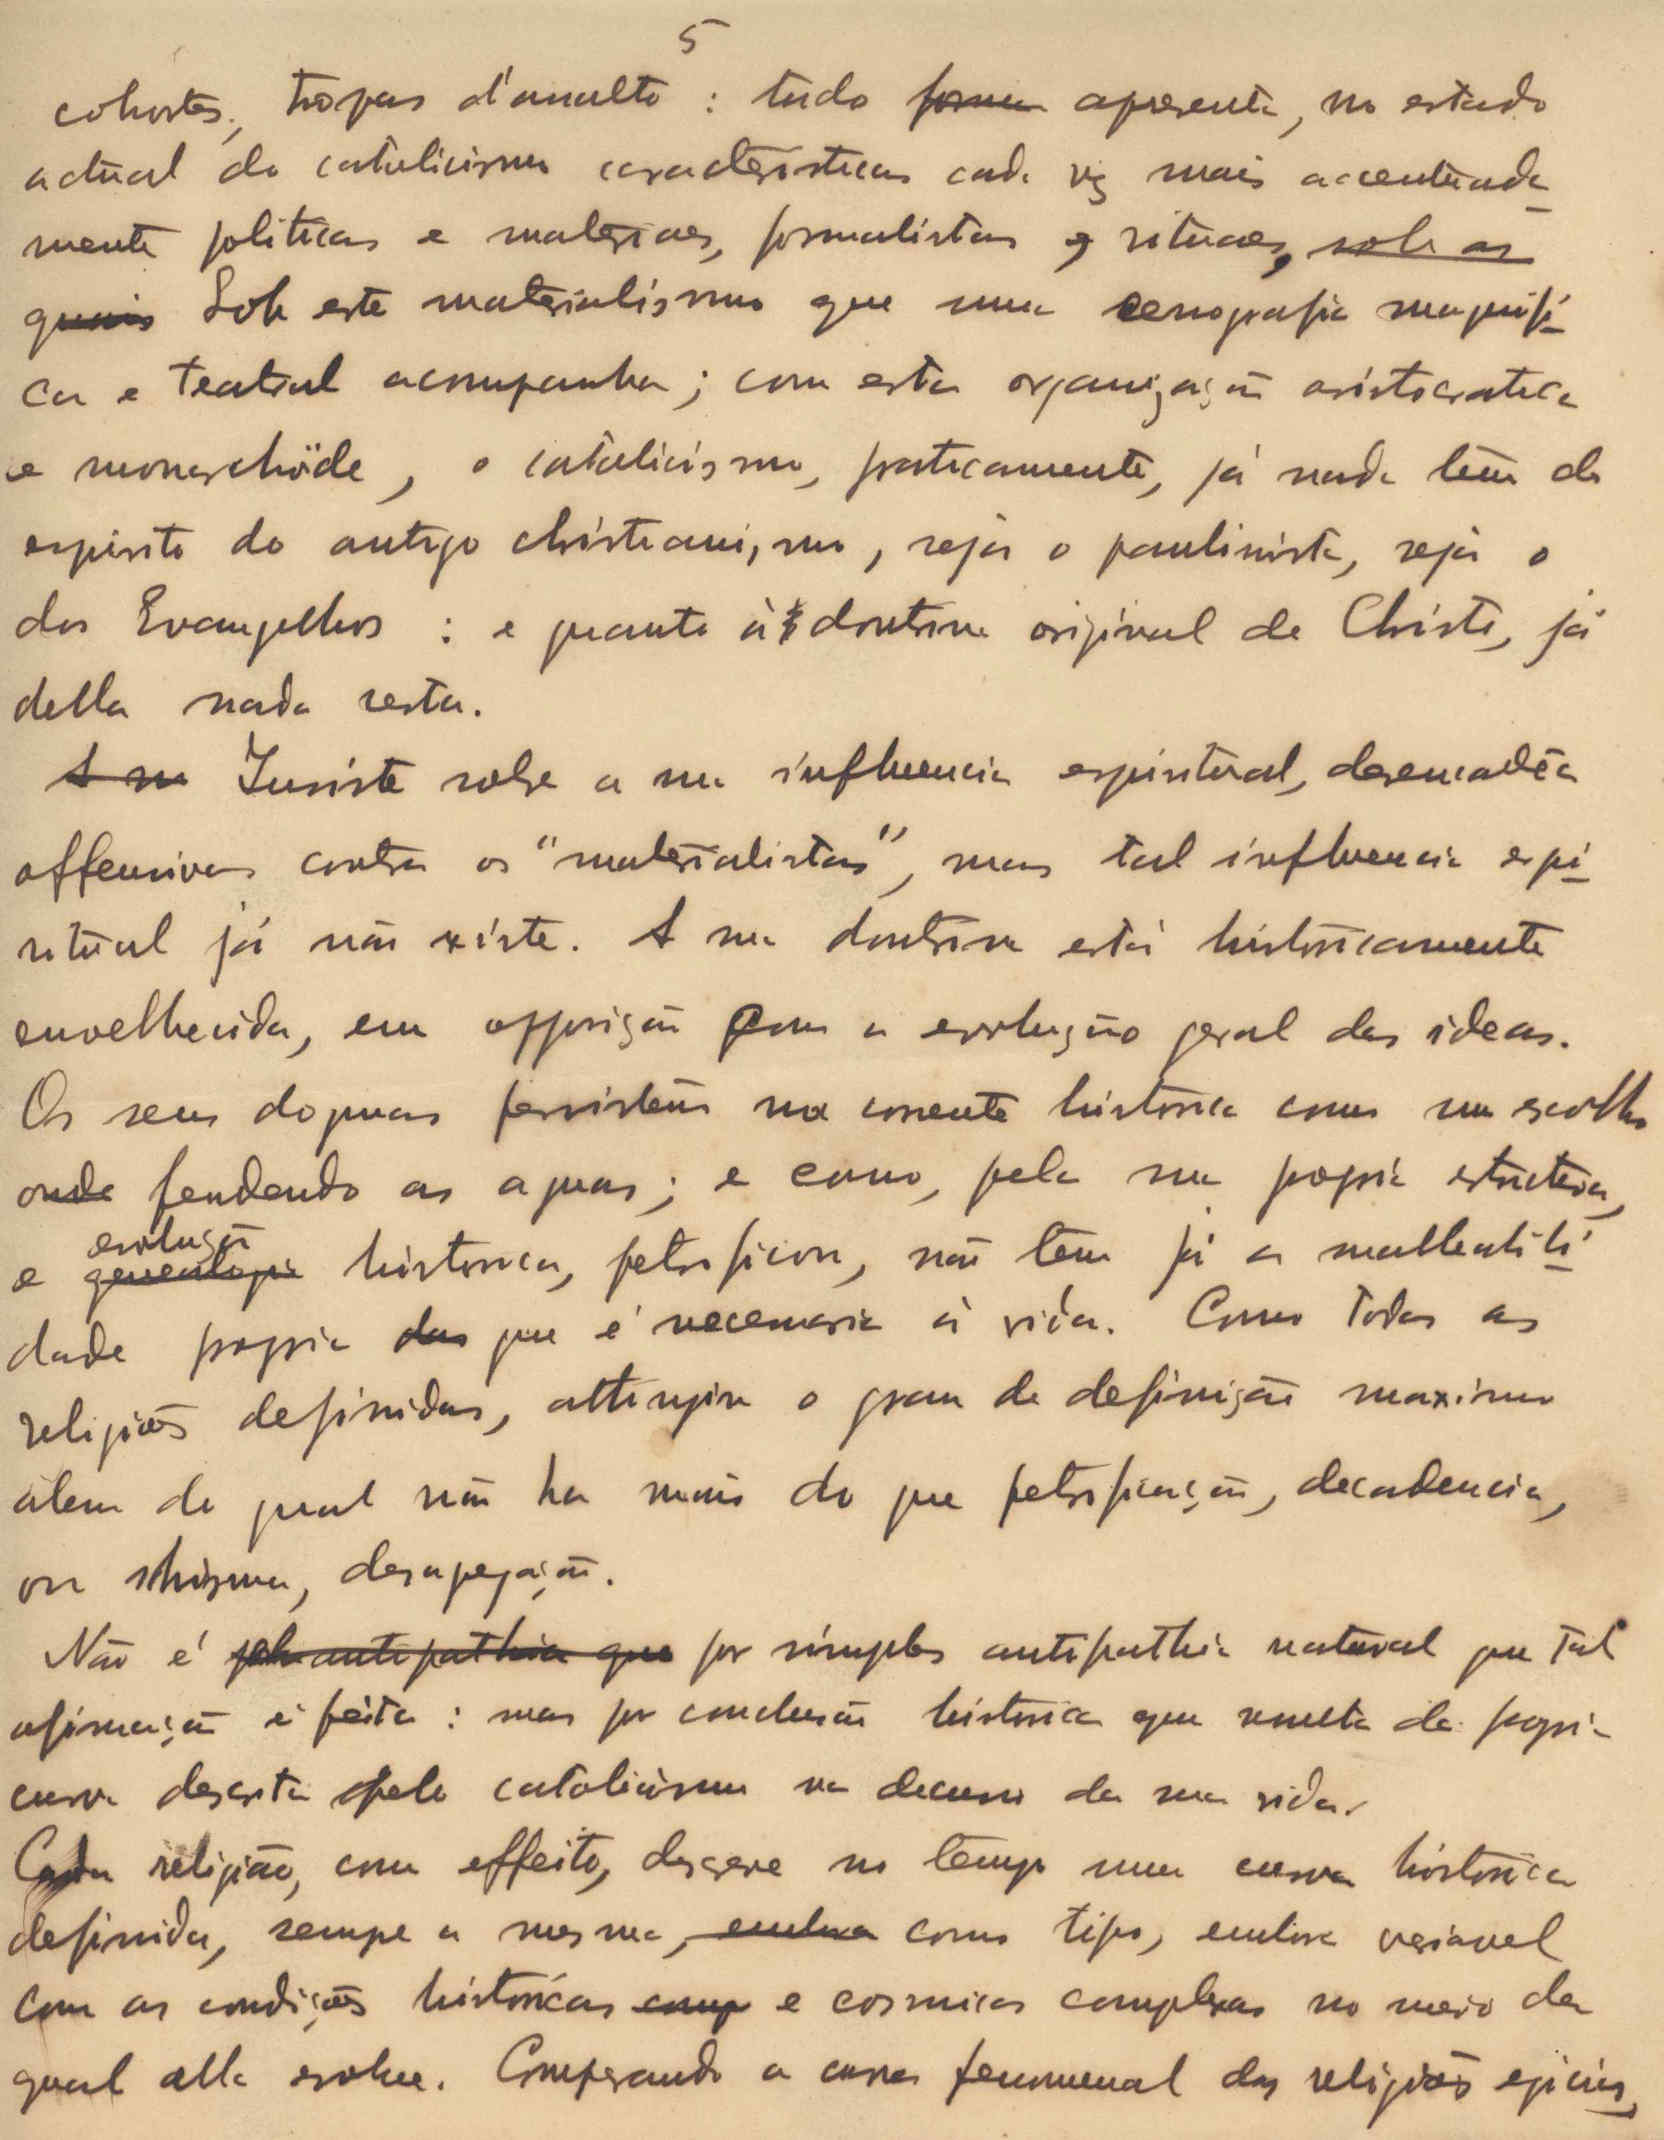 5
cohortes, tropas d'assalto : tudo apresenta, no estado
actual do catolicismo caracteristicas cada vez mais accentuada-
mente politicas e materiaes, formalistas e rituaes, sob as
quais Sob este materialismo que uma cenografia magnifi-
ca e teatral acompanha; com esta organização aristocratica
e monarchöide, o catolicismo, praticamente, já nada têm do
espirito do antigo christianismo, seja o paulinista, seja o
dos Evangelhos : e quanto á doutrina original de Christo, já
della nada resta.
A su Insiste sobre a sua influencia espiritual, desencadêa
offensivas contra os "materialistas", mas tal influencia espi-
ritual já não existe. A sua doutrina está historicamente
envelhecida, em opposição com a evolução geral das ideas.
Os seus dogmas persistem na corrente historica como um escolho
onde fendendo as aguas; e como, pela sua propria estrutura,
evolução
e genealogia historica, petrificou, não têm já a malleabili-
dade propria das que é necessaria á vida. Como todas as
religiões definidas, attingiu o grau de definição maximo
alem do qual não ha mais do que petrificação, decadencia,
ou schisma, desagregação.
Não é pela antipathia que por simples antipathia natural que tal
afirmação é feita : mas por conclusão historica que resulta da propria
curva descrita pelo catolicismo no decurso da sua vida.
Cada religião, com effeito, descreve no tempo uma curva historica
definida, sempre a mesma, embora como tipo, embora variavel
com as condições historicas comp e cosmicas complexas no meio da
qual ella evolue. Comparando a curva fenomenal das religiões egicias,